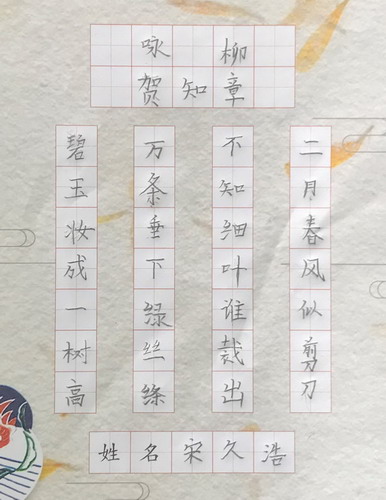 咏柳
贺知章
碧玉妆成一树高
万条垂下绿丝绦
不知细叶谁裁出
二月春风似剪刀
姓名宋久浩